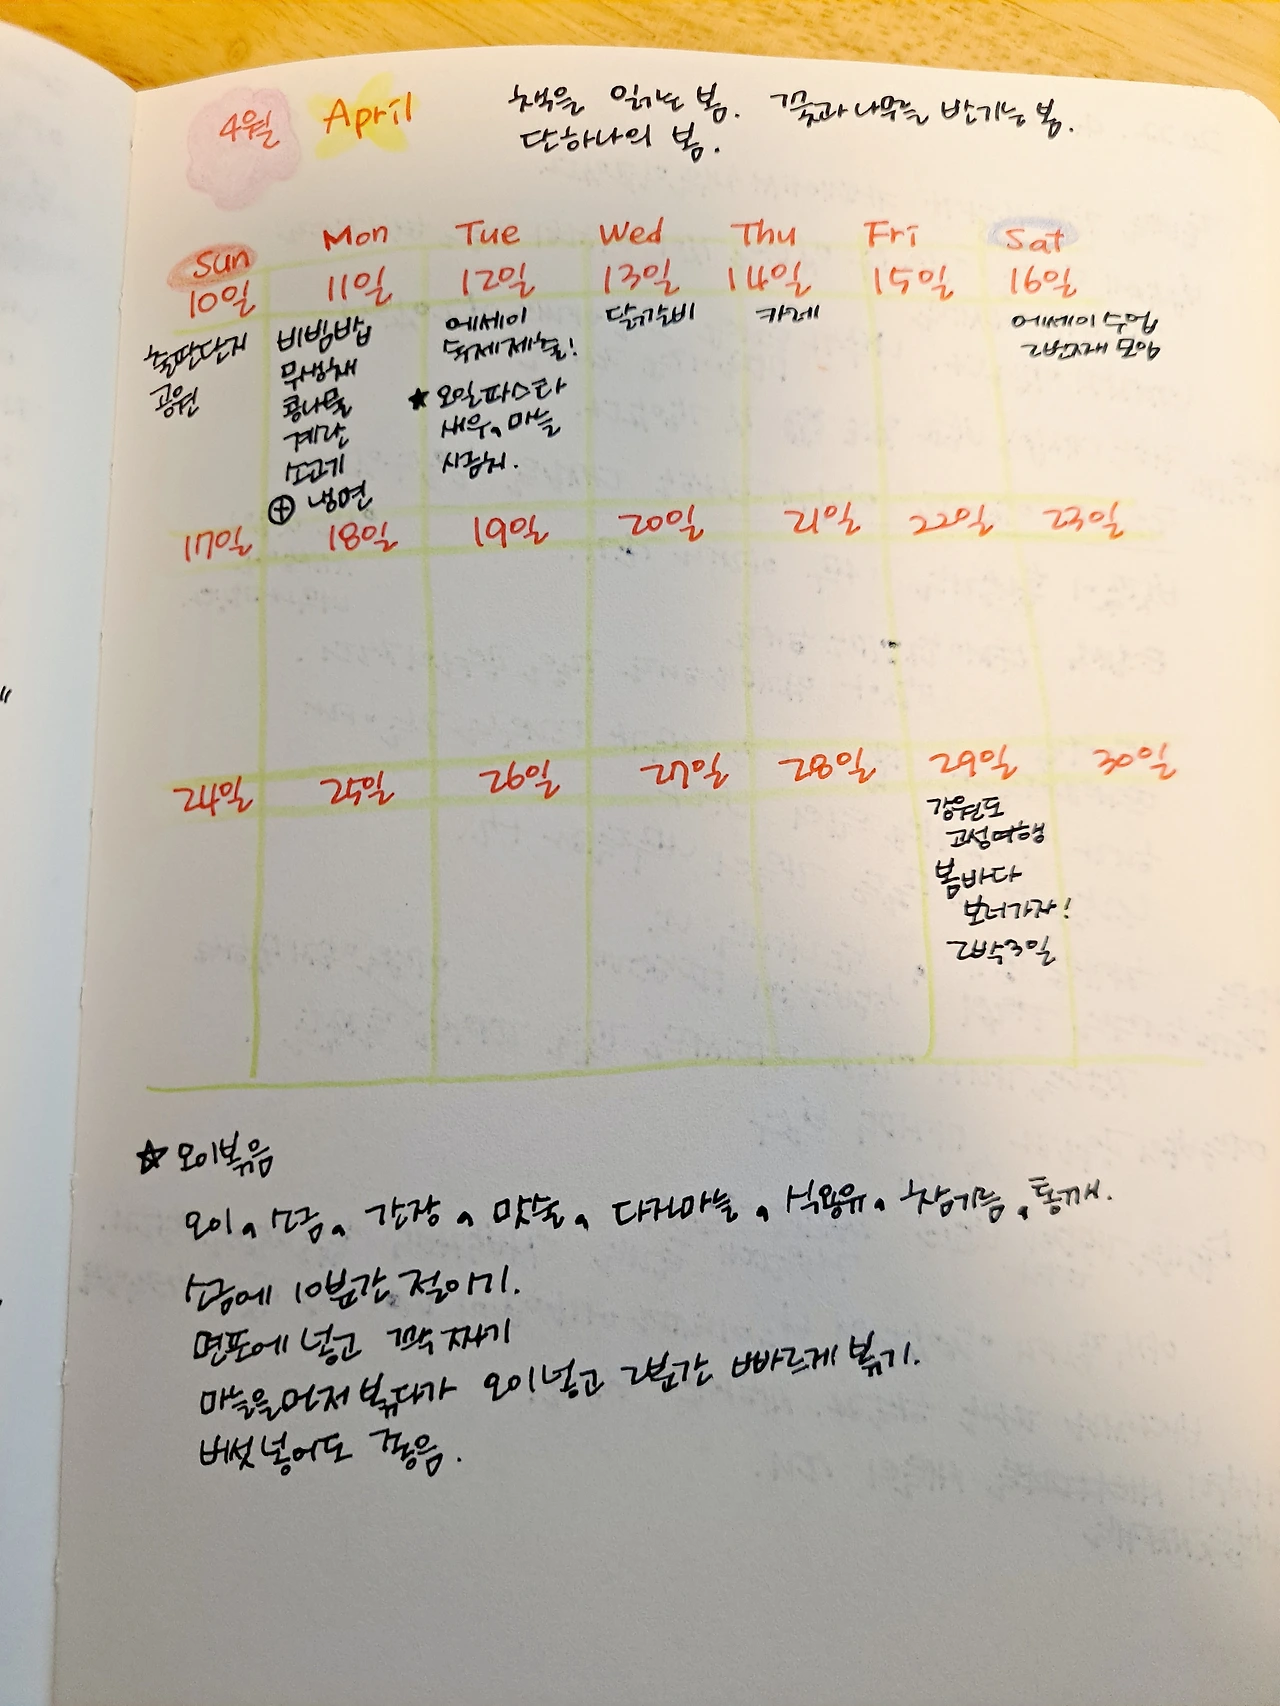 4월 April
책을 읽는 봄. 꽃과 나무를 반기는 봄.
단하나의 봄.
Sun Mon Tue Wed Thu Fri Sat
10일 11일 12일 13일 14일 15일 16일
출판단지
공원
비빔밥
무생채
콩나물
계란
소고기
⊕ 냉면
에세이
숙제제출!
★ 오일파스타
새우, 마늘
시금치.
닭갈비
카레
에세이 수업
2번째 모임
17일 18일 19일 20일 21일 22일 23일
24일 25일 26일 27일 28일 29일 30일
강원도
고성여행
봄바다
보러가자!
2박3일
☆ 오이볶음
오이, 소금, 간장, 맛술, 다진마늘, 식용유, 참기름, 통깨.
소금에 10분간 절이기.
면포에 넣고 꽉 짜기
마늘을 먼저 볶다가 오이넣고 2분간 빠르게 볶기.
버섯 넣어도 좋음.